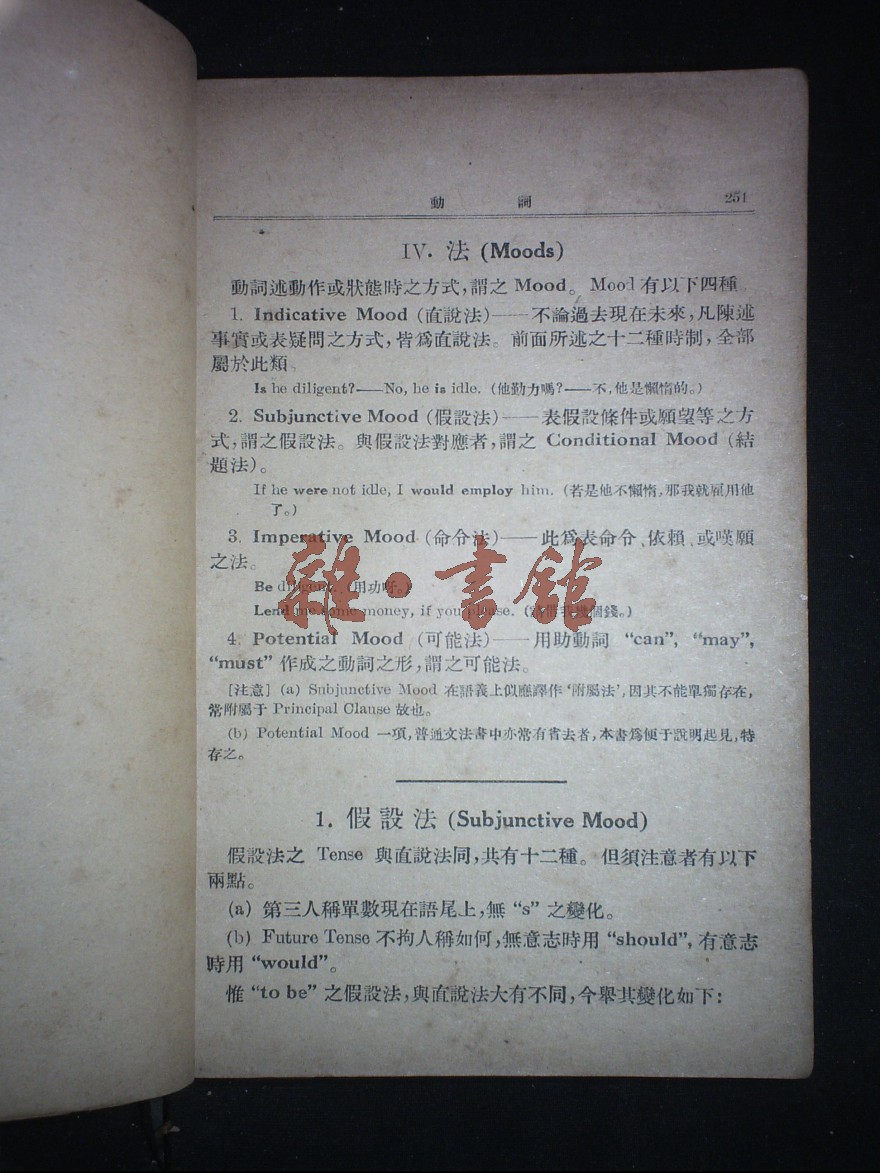 動 詞 251
IV. 法 (Moods)
動詞述動作或狀態時之方式，謂之 Mood。 Mood 有以下四種
1. Indicative Mood (直說法)——不論過去現在未來，凡陳述
事實或表疑問之方式，皆爲直說法。前面所述之十二種時制，全部
屬於此類
Is he diligent?——No, he is idle. (他勤力嗎？——不，他是懶惰的。)
2. Subjunctive Mood (假設法)——表假設條件或願望等之方
式，謂之假設法。與假設法對應者，謂之 Conditional Mood (結
題法)。
If he were not idle, I would employ him. (若是他不懶惰，那我就雇用他
了。)
3. Imperative Mood (命令法)——此爲表命令、依賴、或嘆願
之法。
Be diligent. (用功呀。)
Lend me some money, if you please. (請借我幾個錢。)
4. Potential Mood (可能法)——用助動詞 “can”, “may”,
“must” 作成之動詞之形，謂之可能法。
[注意] (a) Subjunctive Mood 在語義上似應譯作‘附屬法’，因其不能單獨存在，
常附屬于 Principal Clause 故也。
(b) Potential Mood 一項，普通文法書中亦常有省去者，本書爲便于說明起見，特
存之。
1. 假設法 (Subjunctive Mood)
假設法之 Tense 與直說法同，共有十二種。但須注意者有以下
兩點。
(a) 第三人稱單數現在語尾上，無 “s” 之變化。
(b) Future Tense 不拘人稱如何，無意志時用 “should”, 有意志
時用 “would”。
惟 “to be” 之假設法，與直說法大有不同，今舉其變化如下：
雜·書館